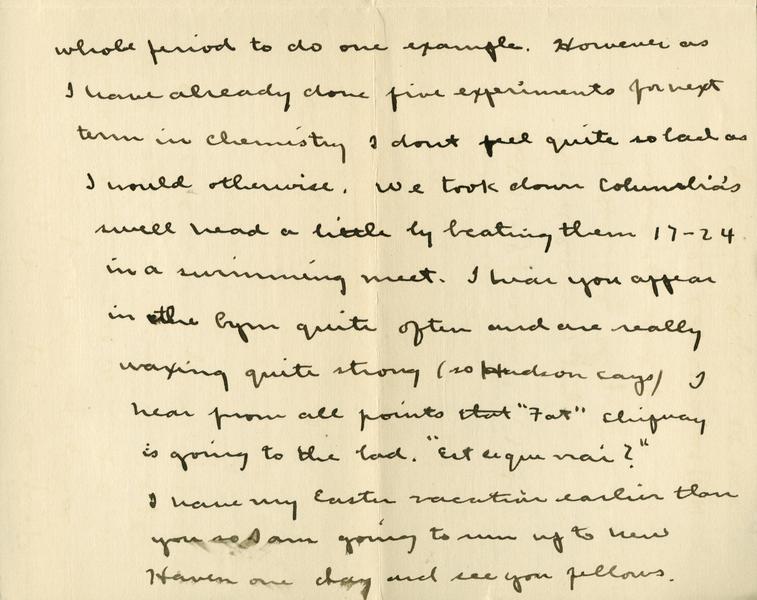 whole period to do one example. However as
I have already done five experiments for next
term in chemistry I dont feel quite so bad as
I would otherwise. We took down Columbia's
swell head a little by beating them 17-24
in a swimming meet. I hear you appear
in the Gym quite often and are really
waxing quite strong (so Hudson says) I
hear from all points that "Fat"
is going to the bad. "Est ce que vrai?"
I have my Easter vacation earlier than
you so I am going to run up to New
Haven one day and see you fellows.